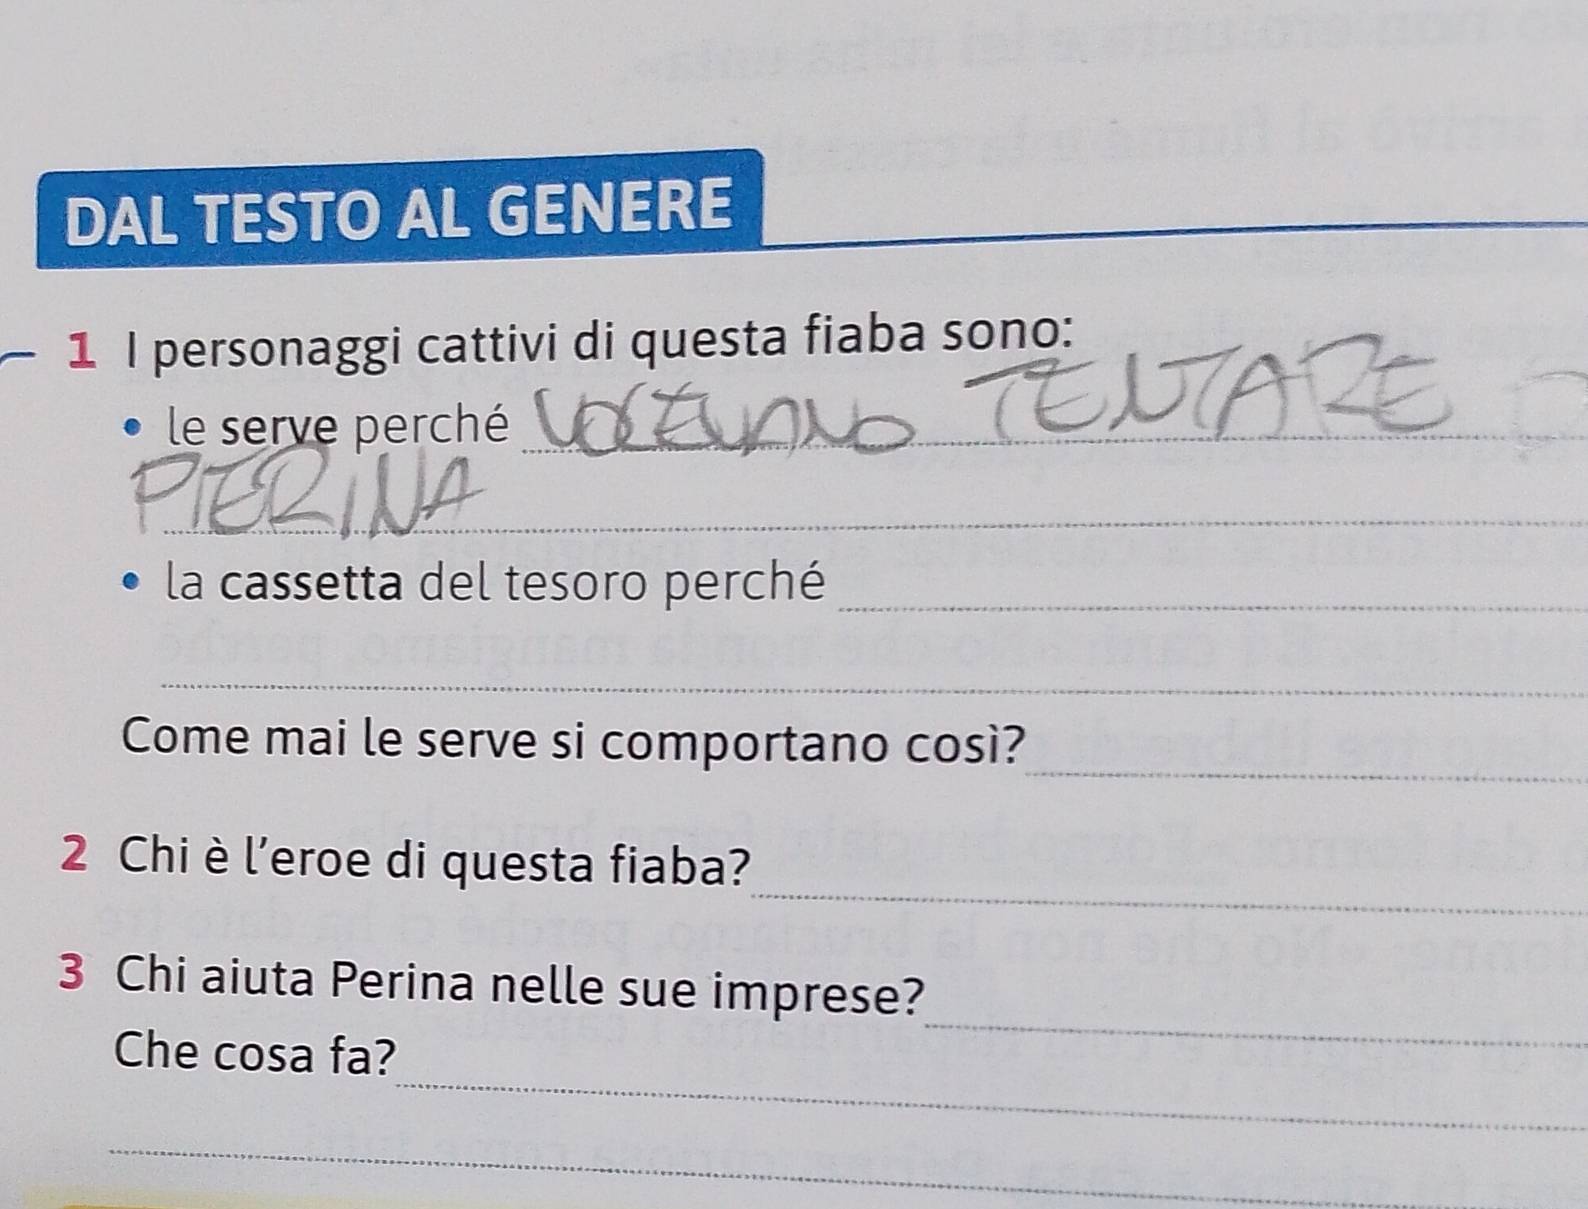 DAL TESTO AL GENERE
1 I personaggi cattivi di questa fiaba sono:
• le serve perché VOLEVANO TENTARE
PIERINA
• la cassetta del tesoro perché
Come mai le serve si comportano così?
2 Chi è l'eroe di questa fiaba?
3 Chi aiuta Perina nelle sue imprese?
Che cosa fa?